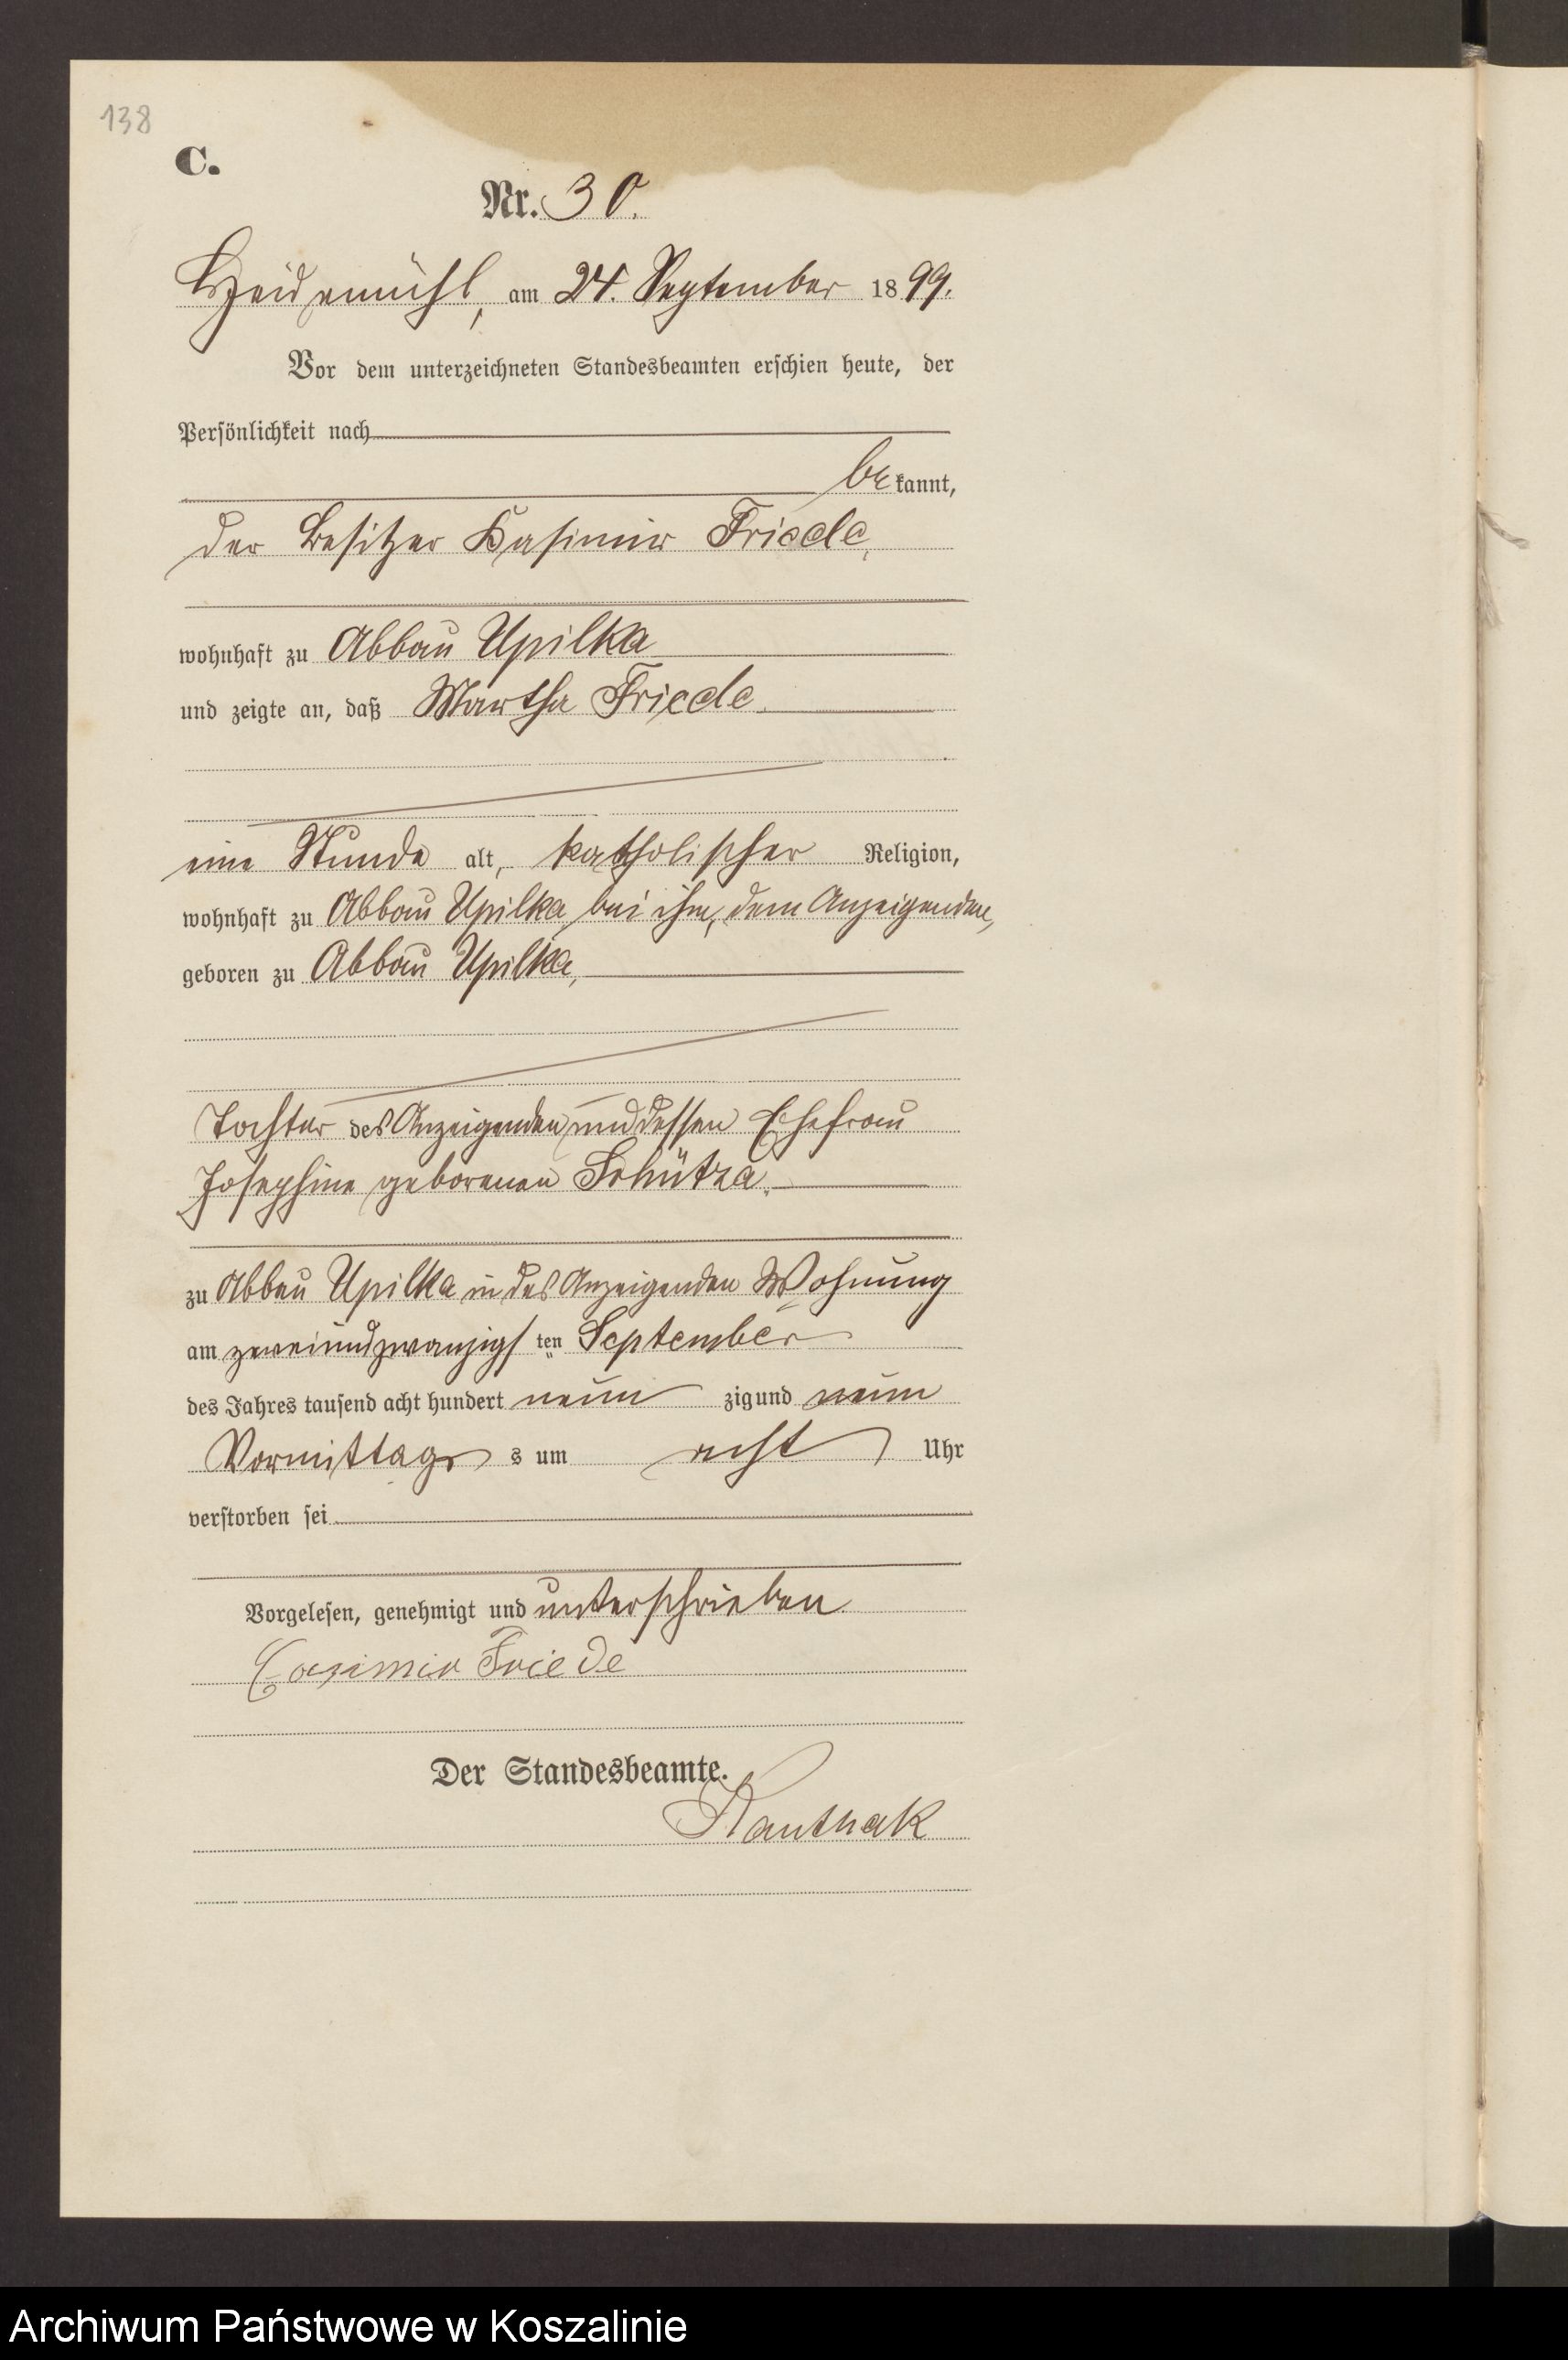 138
C.
Nr. 30.
Heidemühl, am 24. September 1899.
Vor dem unterzeichneten Standesbeamten erschien heute, der
Persönlichkeit nach
bekannt,
der Besitzer Kasimir Friede,
wohnhaft zu Abbau Upilka
und zeigte an, daß Martha Friede
eine Stunde alt, katholischer Religion,
wohnhaft zu Abbau Upilka bei ihm, dem Anzeigenden,
geboren zu Abbau Upilka,
Tochter des Anzeigenden und dessen Ehefrau
Josephine geborenen Schütza,
zu Abbau Upilka in des Anzeigenden Wohnung
am zweiundzwanzigsten September
des Jahres tausend acht hundert neunzig und neun
Vormittags um acht Uhr
verstorben sei
Vorgelesen, genehmigt und unterschrieben
Casimir Friede
Der Standesbeamte.
Archiwum Państwowe w Koszalinie